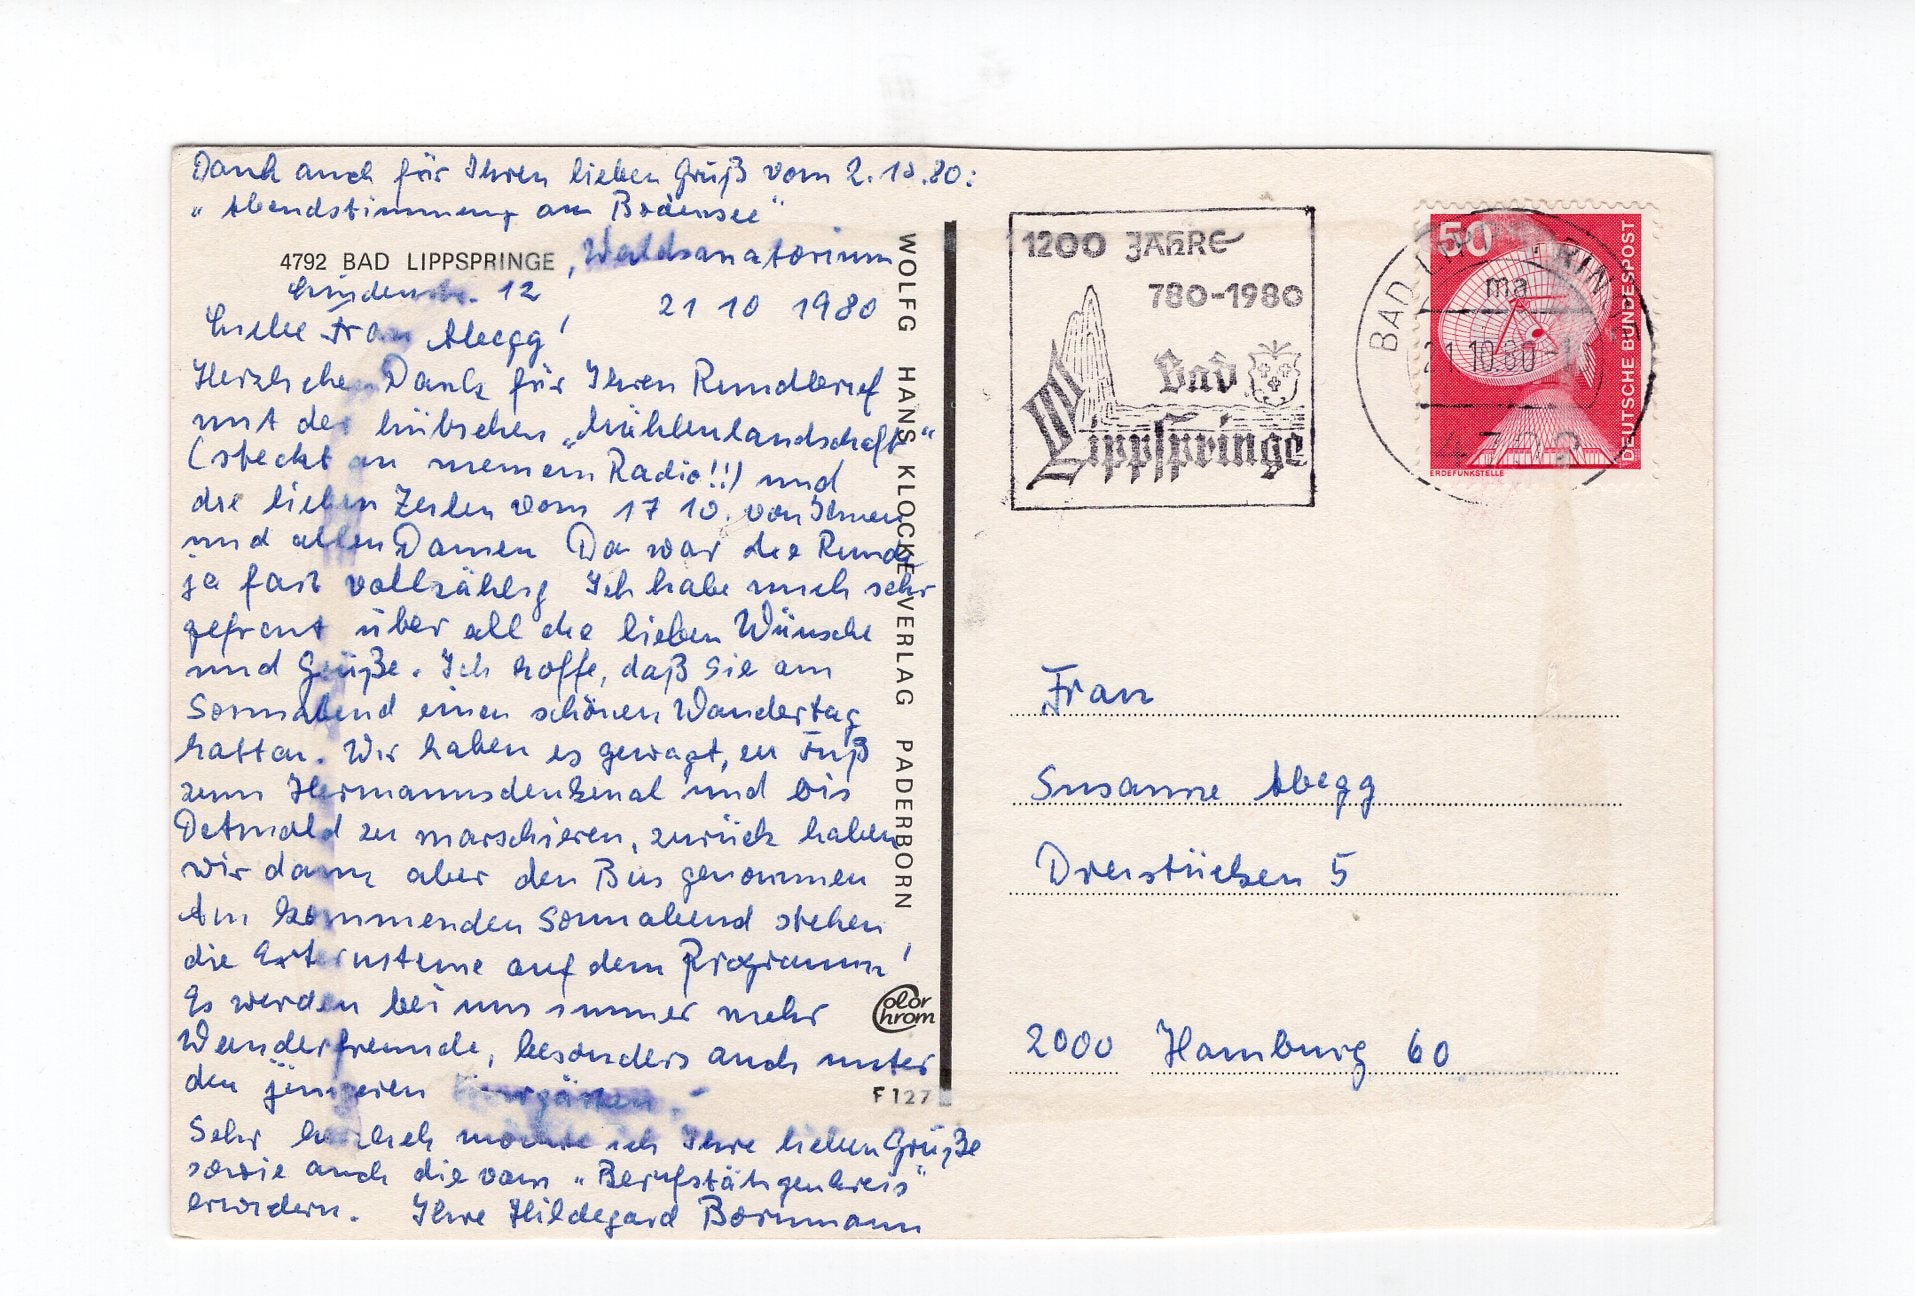 Dank auch für Ihren lieben Gruß vom 2.10.80:
„Abendstimmung am Bodensee"
4792 BAD LIPPSPRINGE, Waldsanatorium
Lindenstr. 12
21 10 1980
Liebe Frau Abegg!
Herzlichen Dank für Ihren Rundbrief
mit der hübschen „Mühlenlandschaft"
(steckt an meinem Radio!!) und
die lieben Zeilen vom 17 10. von Ihnen
und allen Damen Da war die Runde
ja fast vollzählig Ich habe mich sehr
gefreut über all die lieben Wünsche
und Grüße. Ich hoffe, daß Sie am
Sonnabend einen schönen Wandertag
hatten. Wir haben es gewagt, zu Fuß
zum Hermannsdenkmal und bis
Detmold zu marschieren, zurück haben
wir dann aber den Bus genommen
Am kommenden Sonnabend stehen
die Externsteine auf dem Programm!
Es werden bei uns immer mehr
Wanderfreunde, besonders auch unter
den jüngeren Kurgästen.
Sehr herzlich möchte ich Ihre lieben Grüße
sowie auch die vom „Berufstätigenkreis"
erwidern. Ihre Hildegard Bornmann
WOLFG HANS KLOCKE VERLAG PADERBORN
Color Chrom
F 127
1200 JAHRE
780-1980
Bad
Lippspringe
50
DEUTSCHE BUNDESPOST
ERDEFUNKSTELLE
BAD LIPPSPRINGE
ma
21.10.80
4792
Frau
Susanne Abegg
Dreistücken 5
2000 Hamburg 60